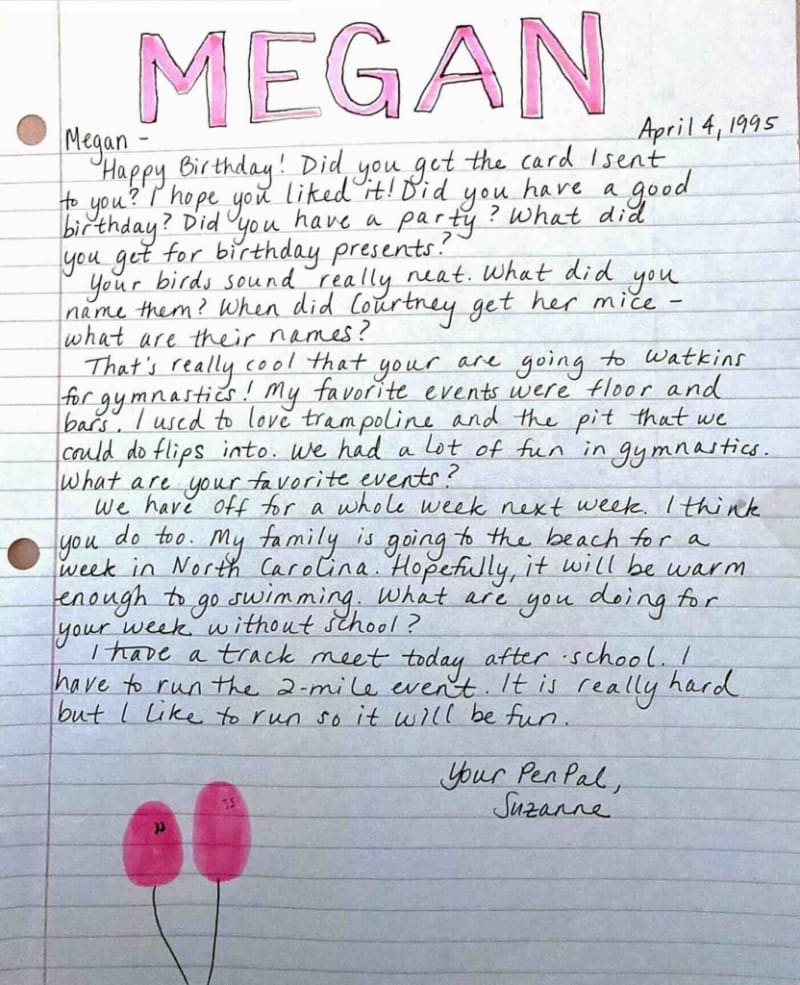 MEGAN
April 4, 1995
Megan -
Happy Birthday! Did you get the card I sent
to you? I hope you liked it! Did you have a good
birthday? Did you have a party? What did
you get for birthday presents?
Your birds sound really neat. What did you
name them? When did Courtney get her mice -
what are their names?
That's really cool that your are going to Watkins
for gymnastics! My favorite events were floor and
bars. I used to love trampoline and the pit that we
could do flips into. We had a lot of fun in gymnastics.
What are your favorite events?
We have off for a whole week next week. I think
you do too. My family is going to the beach for a
week in North Carolina. Hopefully, it will be warm
enough to go swimming. What are you doing for
your week without school?
I have a track meet today after school. I
have to run the 2-mile event. It is really hard
but I like to run so it will be fun.
Your Pen Pal,
Suzanne